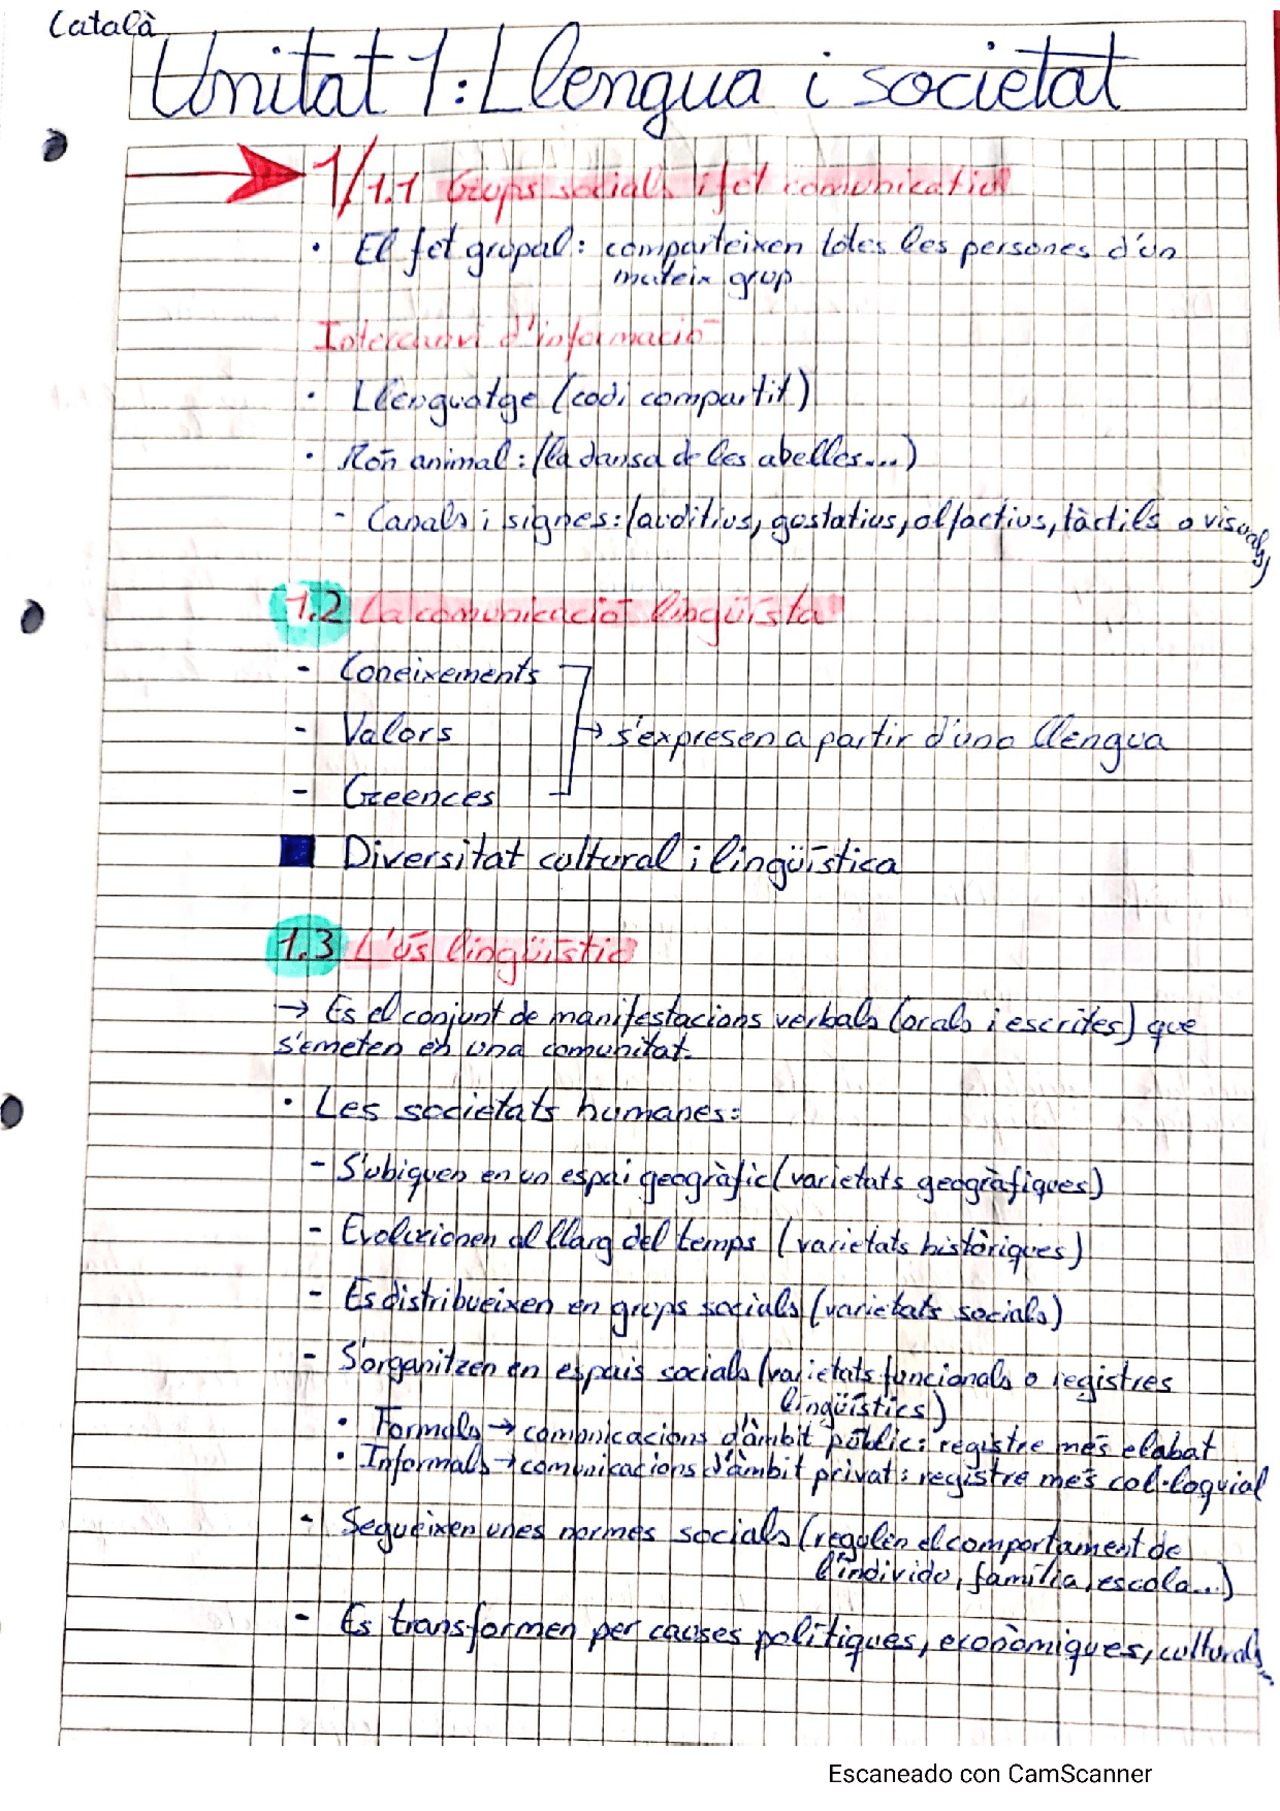 Català
Unitat 1: Llengua i societat
1/1.1 Grups socials i fet comunicatiu
• El fet grupal: comparteixen totes les persones d'un
mateix grup
Intercanvi d'informació
• Llenguatge (codi compartit)
• Món animal: (la dansa de les abelles...)
- Canals i signes: (auditius, gustatius, olfactius, tàctils o visuals)
1.2 La comunicació lingüísta
- Coneixements
- Valors → s'expresen a partir d'una llengua
- Creences
■ Diversitat cultural i lingüística
1.3 L'ús lingüístic
→ Es el conjunt de manifestacions verbals (orals i escrites) que
s'emeten en una comunitat.
• Les societats humanes:
- S'ubiquen en un espai geogràfic (varietats geogràfiques)
- Evolucionen al llarg del temps (varietats històriques)
- Es distribueixen en grups socials (varietats socials)
- S'organitzen en espais socials (varietats funcionals o registres
lingüístics)
• Formals → comunicacions d'àmbit públic: registre més elabat
• Informals → comunicacions d'àmbit privat: registre més col·loquial
- Segueixen unes normes socials (regulen el comportament de
l'individu, família, escola...)
- Es transformen per causes polítiques, econòmiques, culturals...
Escaneado con CamScanner